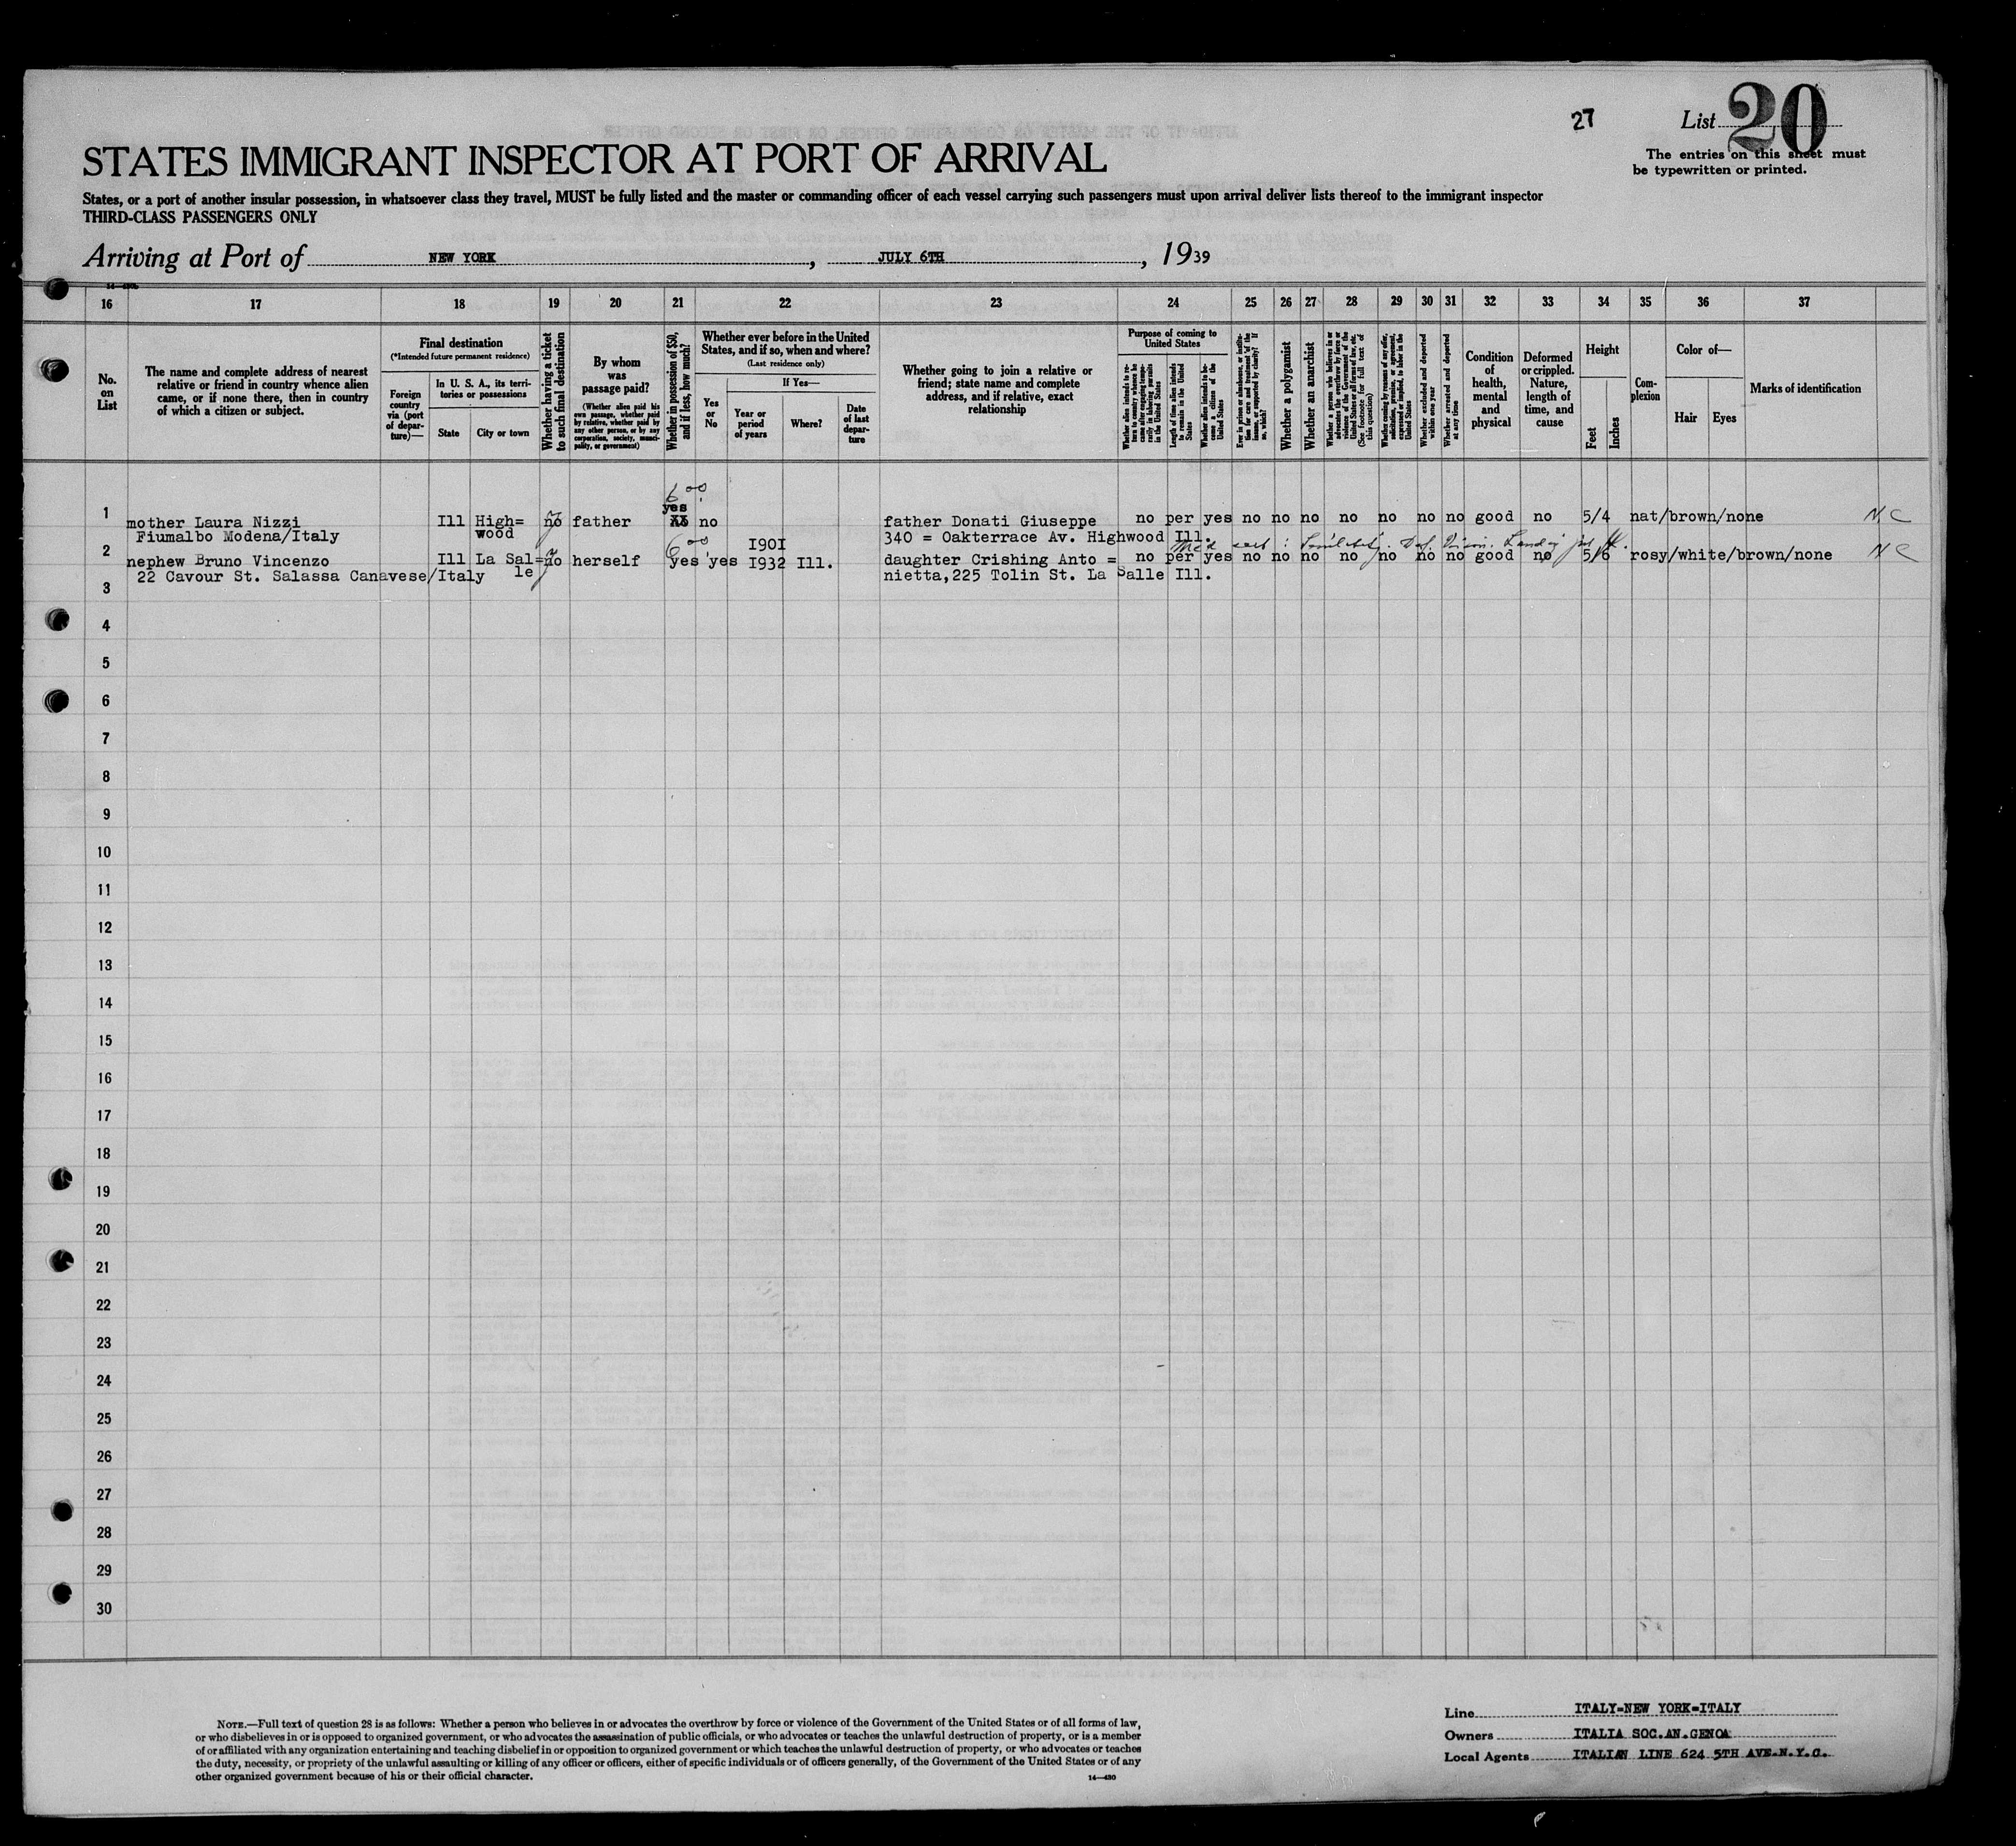 27
List 20
The entries on this sheet must
be typewritten or printed.
STATES IMMIGRANT INSPECTOR AT PORT OF ARRIVAL
States, or a part of another insular possession, in whatsoever class they travel, MUST be fully listed and the master or commanding officer of each vessel carrying such passengers must upon arrival deliver lists thereof to the immigrant inspector
THIRD-CLASS PASSENGERS ONLY
Arriving at Port of NEW YORK, JULY 6TH, 1939
16 17 18 19 20 21 22 23 24 25 26 27 28 29 30 31 32 33 34 35 36 37
No.
on
List
The name and complete address of nearest
relative or friend in country whence alien
came, or if none there, then in country
of which a citizen or subject.
Final destination
(*Intended future permanent residence)
Foreign
country
via (port
of depar-
ture)—
In U. S. A., its terri-
tories or possessions
State
City or town
Whether having a ticket
to such final destination
By whom
was
passage paid?
(Whether alien paid his
own passage, whether paid
by relative, whether paid by
any other person, or by any
corporation, society, munici-
pality, or government)
Whether in possession of $50,
and if less, how much?
Whether ever before in the United
States, and if so, when and where?
(Last residence only)
Yes
or
No
If Yes—
Year or
period
of years
Where?
Date
of last
depar-
ture
Whether going to join a relative or
friend; state name and complete
address, and if relative, exact
relationship
Purpose of coming to
United States
Whether alien intends to re-
turn to country whence he
came after engaging tempo-
rarily in laboring pursuits
in the United States
Length of time alien intends
to remain in the United
States
Whether alien intends to be-
come a citizen of the
United States
Ever in prison or almshouse, or institu-
tion for care and treatment of the
insane, or supported by charity? If
so, which?
Whether a polygamist
Whether an anarchist
Whether a person who believes in or
advocates the overthrow by force or
violence of the Government of the
United States or all forms of law, etc.
(See footnote for full text of
this question)
Whether coming by reason of any offer,
solicitation, promise, or agreement,
expressed or implied, to labor in the
United States
Whether excluded and deported
within one year
Whether arrested and deported
at any time
Condition
of
health,
mental
and
physical
Deformed
or crippled.
Nature,
length of
time, and
cause
Height
Feet
Inches
Com-
plexion
Color of—
Hair
Eyes
Marks of identification
6 00
yes
1 mother Laura Nizzi Ill High= no father no father Donati Giuseppe no per yes no no no no no no no good no 5/4 nat/brown/none N C
Fiumalbo Modena/Italy wood 340 = Oakterrace Av. Highwood Ill.
6 00 I90I
2 nephew Bruno Vincenzo Ill La Sal= no herself yes yes I932 Ill. daughter Crishing Anto = no per yes no no no no no no no good no 5/6 rosy/white/brown/none N C
22 Cavour St. Salassa Canavese/Italy le nietta,225 Tolin St. La Salle Ill.
3
4
5
6
7
8
9
10
11
12
13
14
15
16
17
18
19
20
21
22
23
24
25
26
27
28
29
30
NOTE.—Full text of question 28 is as follows: Whether a person who believes in or advocates the overthrow by force or violence of the Government of the United States or of all forms of law,
or who disbelieves in or is opposed to organized government, or who advocates the assassination of public officials, or who advocates or teaches the unlawful destruction of property, or is a member
of or affiliated with any organization entertaining and teaching disbelief in or opposition to organized government or which teaches the unlawful destruction of property, or who advocates or teaches
the duty, necessity, or propriety of the unlawful assaulting or killing of any officer or officers, either of specific individuals or of officers generally, of the Government of the United States or of any
other organized government because of his or their official character.
14—430
Line ITALY=NEW YORK=ITALY
Owners ITALIA SOC.AN.GENOA
Local Agents ITALIAN LINE 624 5TH AVE.N.Y.C.